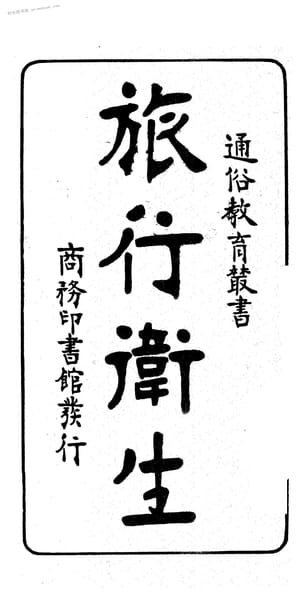 通俗敎育叢書
旅行衛生
商務印書館發行